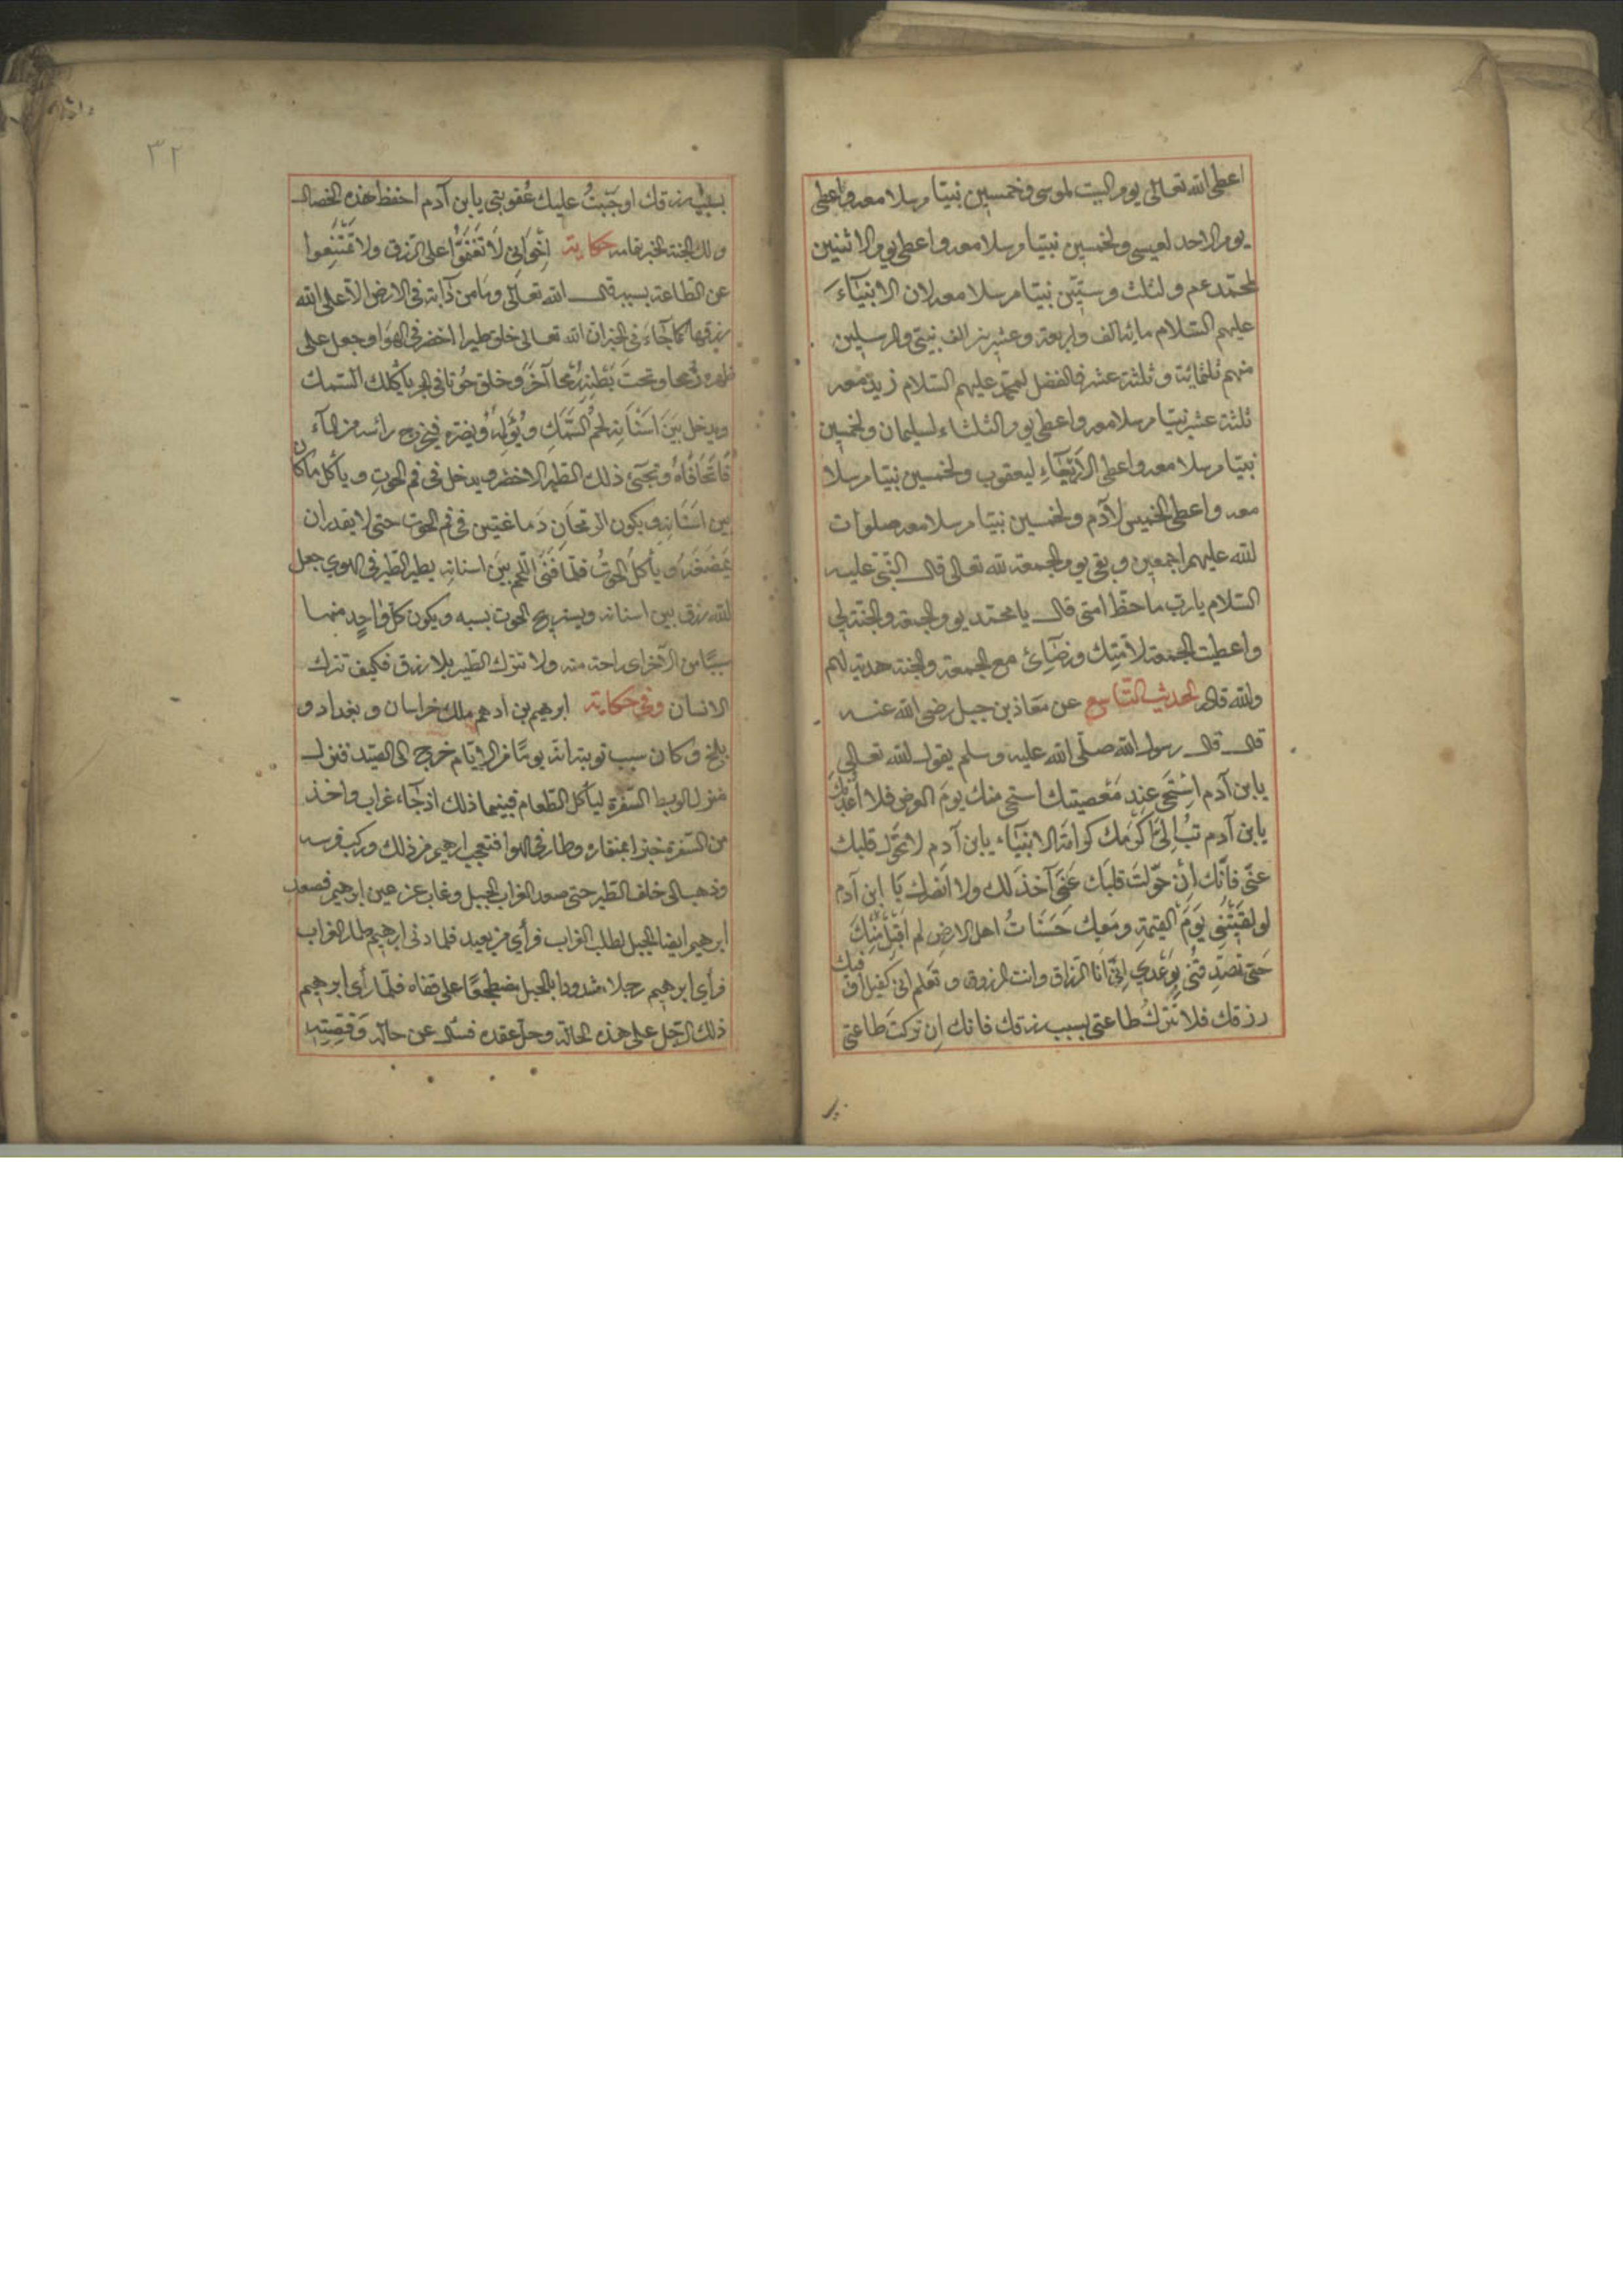 اعطى الله تعالى يوم السبت لموسى وخمسين نبيا مرسلا معه واعطى
يوم الاحد لعيسى ولخمسين نبيا مرسلا معه واعطى يوم الاثنين
لمحمد عم ولثلث وستين نبيا مرسلا معه لان الانبياء
عليهم السلام مائة الف واربعة وعشرين الف نبي والمرسلين
منهم ثلثمائة وثلثة عشر فالفضل لمحمد عليهم السلام زيد معه
ثلثة عشر نبيا مرسلا معه واعطى يوم الثلثاء لسليمان ولخمسين
نبيا مرسلا معه واعطى الاربعاء ليعقوب ولخمسين نبيا مرسلا
معه واعطى الخميس لآدم ولخمسين نبيا مرسلا معه صلوات
الله عليهم اجمعين وبقي يوم الجمعة لله تعالى قال النبي عليه
السلام يا رب ما حظ امتى قال يا محمد يوم الجمعة والجنة لي
واعطيت الجمعة لامتك ورضائ مع الجمعة والجنة هدية لهم
والله قادر الحديث التاسع عن معاذ بن جبل رضى الله عنه
قال قال رسول الله صلى الله عليه وسلم يقول الله تعالى
يابن آدم استحى عند معصيتك استحى منك يوم العرض فلا اعذبك
يابن آدم تب الي اكرمك كرامة الانبياء يابن آدم لا تحول قلبك
عنى فانك ان حولت قلبك عنى آخذ لك ولا انصرك يا ابن آدم
لو لقيتنى يوم القيمة ومعك حسنات اهل الارض لم اقبل منك
حتى تصدقنى بوعدي انى انا الرزاق وانت المرزوق وتعلم انى كفيل فيك
رزقك فلا تترك طاعتى بسبب رزقك فانك ان تركت طاعتى
٣٢
بسبب رزقك اوجبت عليك عقوبتى يابن آدم احفظ هذه الخصال
ولك الجنة حكاية اخوانى لا تغتموا على الرزق ولا تمتنعوا
عن الطاعة بسببه قال الله تعالى وما من دابة فى الارض الا على الله
رزقها كما جاء فى الخبر ان الله تعالى خلق طيرا اخضر فى الهوا وجعل على
ظهره رمحا وتحت بطنه رمحا آخر وخلق حوتا فى البحر يأكل السمك
ويدخل بين اسنانه لحم السمك ويؤلمه ويضره فيخرج رأسه من الماء
فاتحا فاه ويجئ ذلك الطير الاخضر ويدخل فى فم الحوت ويأكل ما كان
بين اسنانه ويكون الرمحان فى فم الحوت حتى لا يقدر ان
يمضغه ويأكل الحوت فلما فنى اللحم بين اسنانه يطير الطير فى الهوي جعل
الله رزق بين اسنانه ويستريح الحوت بسببه ويكون كل واحد منهما
سببا من الآخر راحة منه ولا تترك الطير بلا رزق فكيف تترك
الانسان وفى حكاية ابرهيم بن ادهم ملك خراسان وبغداد و
بلخ وكان سبب توبته انه يوما من الايام خرج الى الصيد فنزل
منزلا وبسط السفرة ليأكل الطعام فبينما ذلك اذ جاء غراب واخذ
من السفرة خبزا بمنقاره وطار فى الهوا فتعجب ابرهيم من ذلك وركب فرسه
وذهب الى خلف الطير حتى صعد الغراب الجبل وغاب عن عين ابرهيم فصعد
ابرهيم ايضا الجبل لطلب الغراب فرأى من بعيد فلما دنى ابرهيم طار الغراب
فرأى ابرهيم رجلا مشدودا بالحبل مضطجعا على قفاه فلما رأى ابرهيم
ذلك الرجل على هذه الحالة وحل عقده فسأل عن حاله وقصته